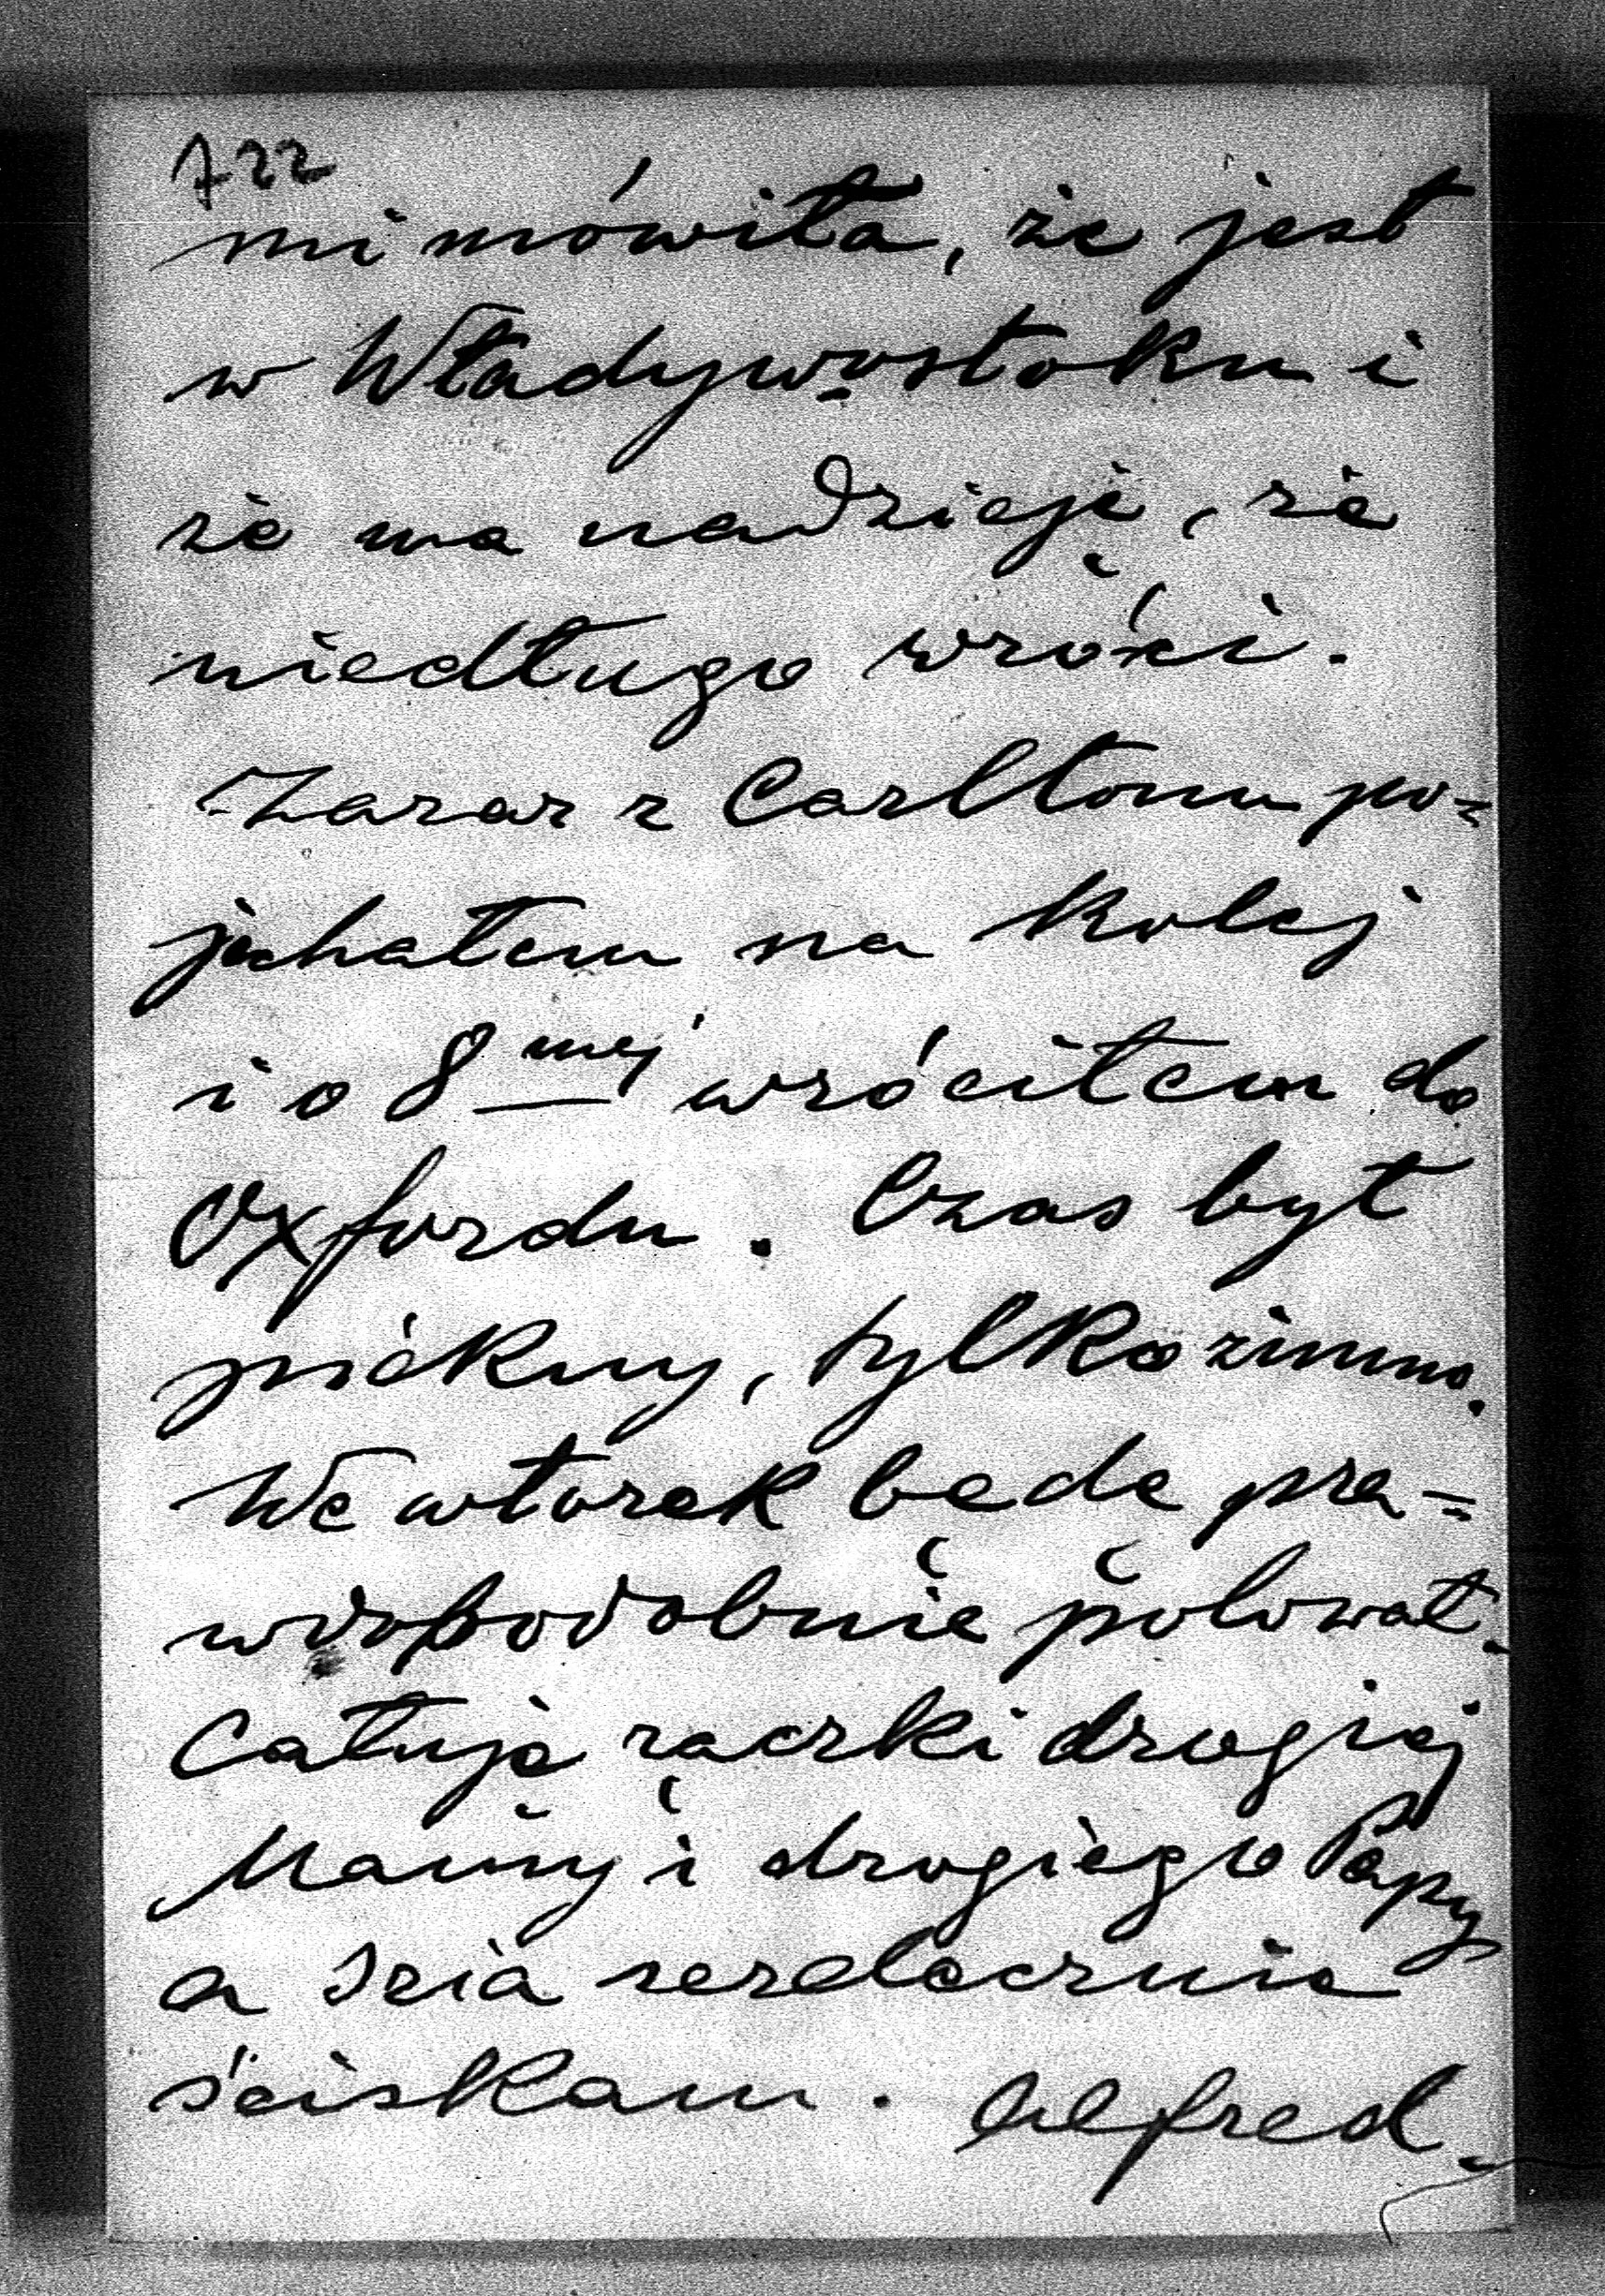 722
mi mówiła, że jest
w Władywostoku i
że ma nadzieję, że
niedługo wróci.
Zaraz z Carltonu po=
jechałem na kolej
i o 8mej wróciłem do
Oxfordu. Czas był
piękny, tylko zimno.
We wtorek będę pra=
wdopodobnie polował.
Całuję rączki drogiej
Mamy i drogiego Papy
a Józia serdecznie
ściskam. Alfred.